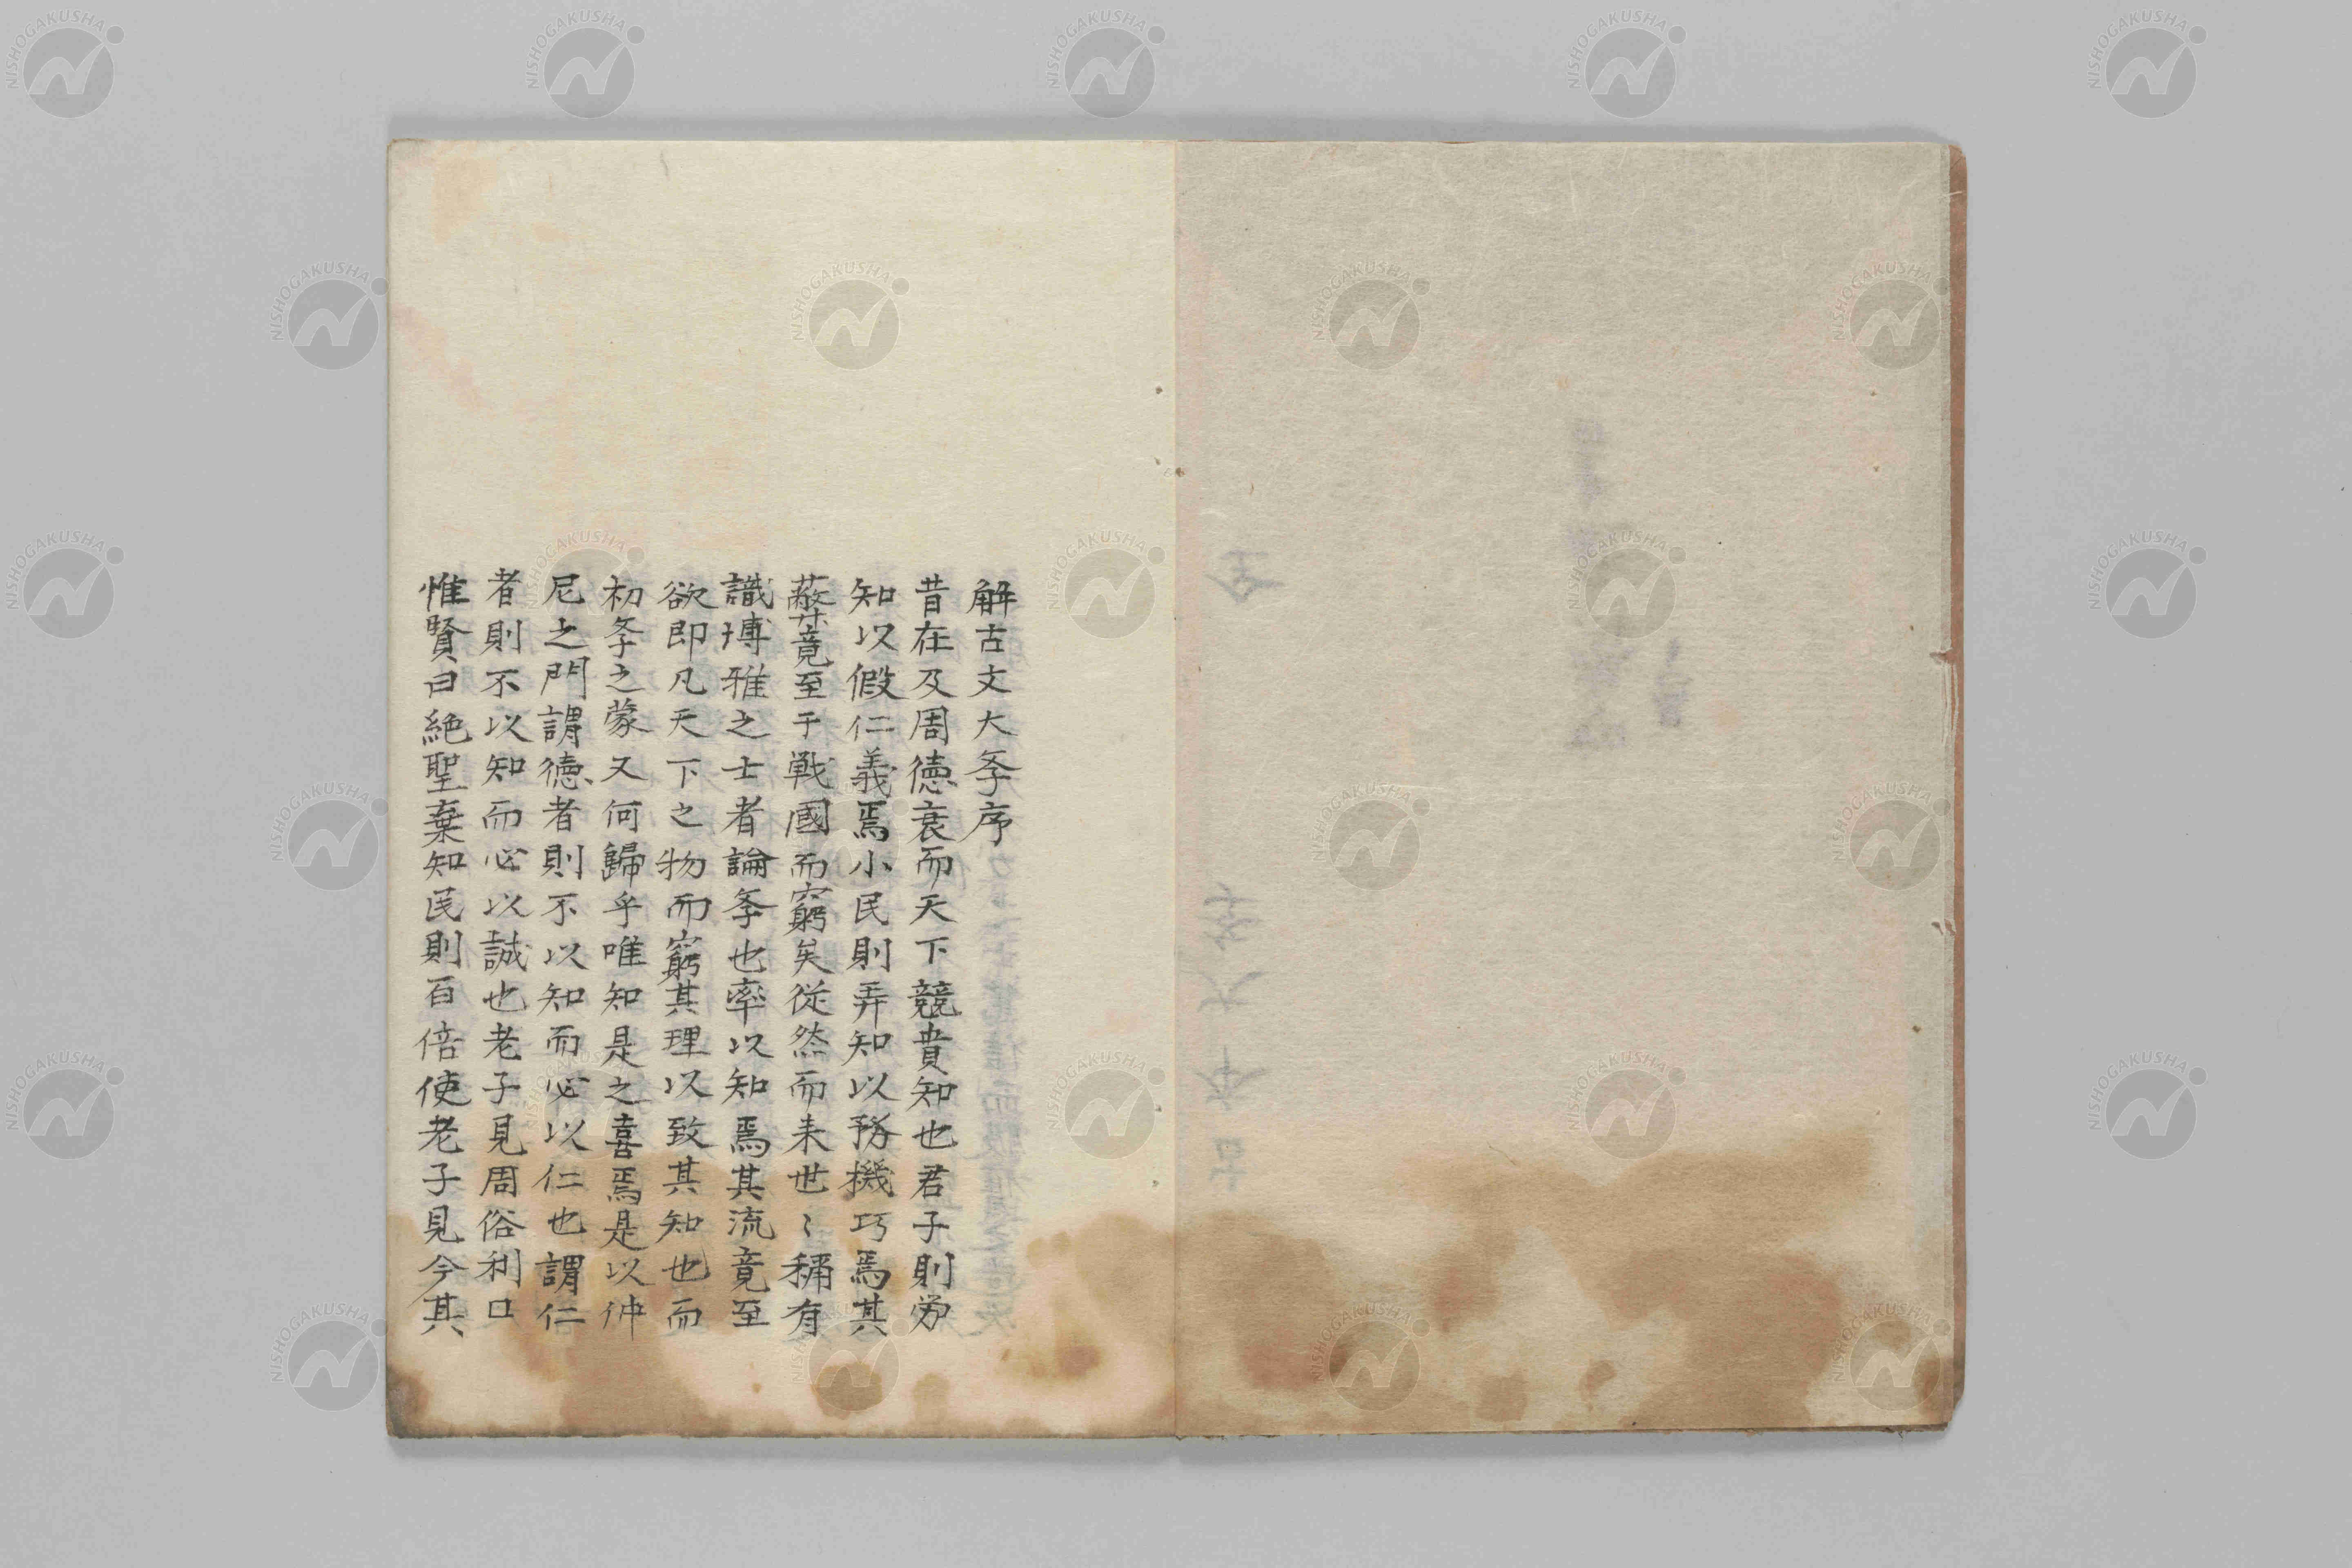 解古文大斈序
昔在及周徳衰而天下競貴知也君子則労
知以假仁義焉小民則弄知以務機巧焉其
蔽竟至于戦國而窮矣従然而来世〻稱有
識博雅之士者論斈也率以知焉其流竟至
欲即凡天下之物而窮其理以致其知也而
初斈之蒙又何歸乎唯知是之喜焉是以仲
尼之門謂徳者則不以知而必以仁也謂仁
者則不以知而必以誠也老子見周俗利口
惟賢曰絶聖棄知民則百倍使老子見今其
NISHOGAKUSHA